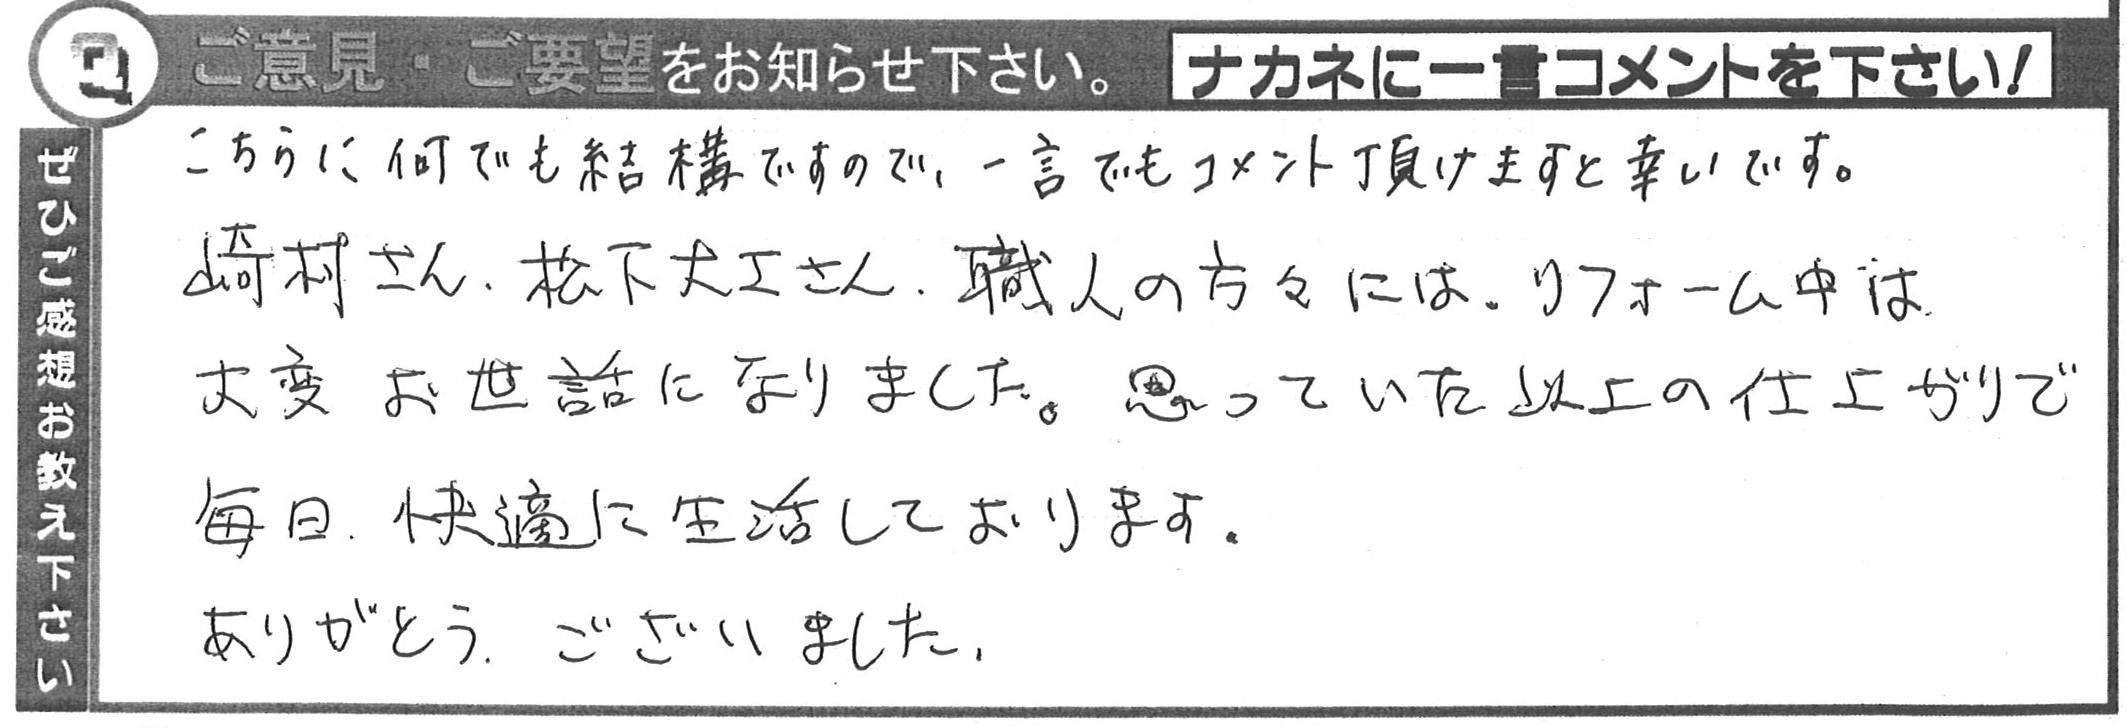 Q ご意見・ご要望をお知らせ下さい。 ナカネに一言コメントを下さい!
ぜひご感想お教え下さい
こちらに何でも結構ですので、一言でもコメント頂けますと幸いです。
崎村さん、松下大工さん、職人の方々には、リフォーム中は
大変お世話になりました。思っていた以上の仕上がりで
毎日、快適に生活しております。
ありがとう、ございました、